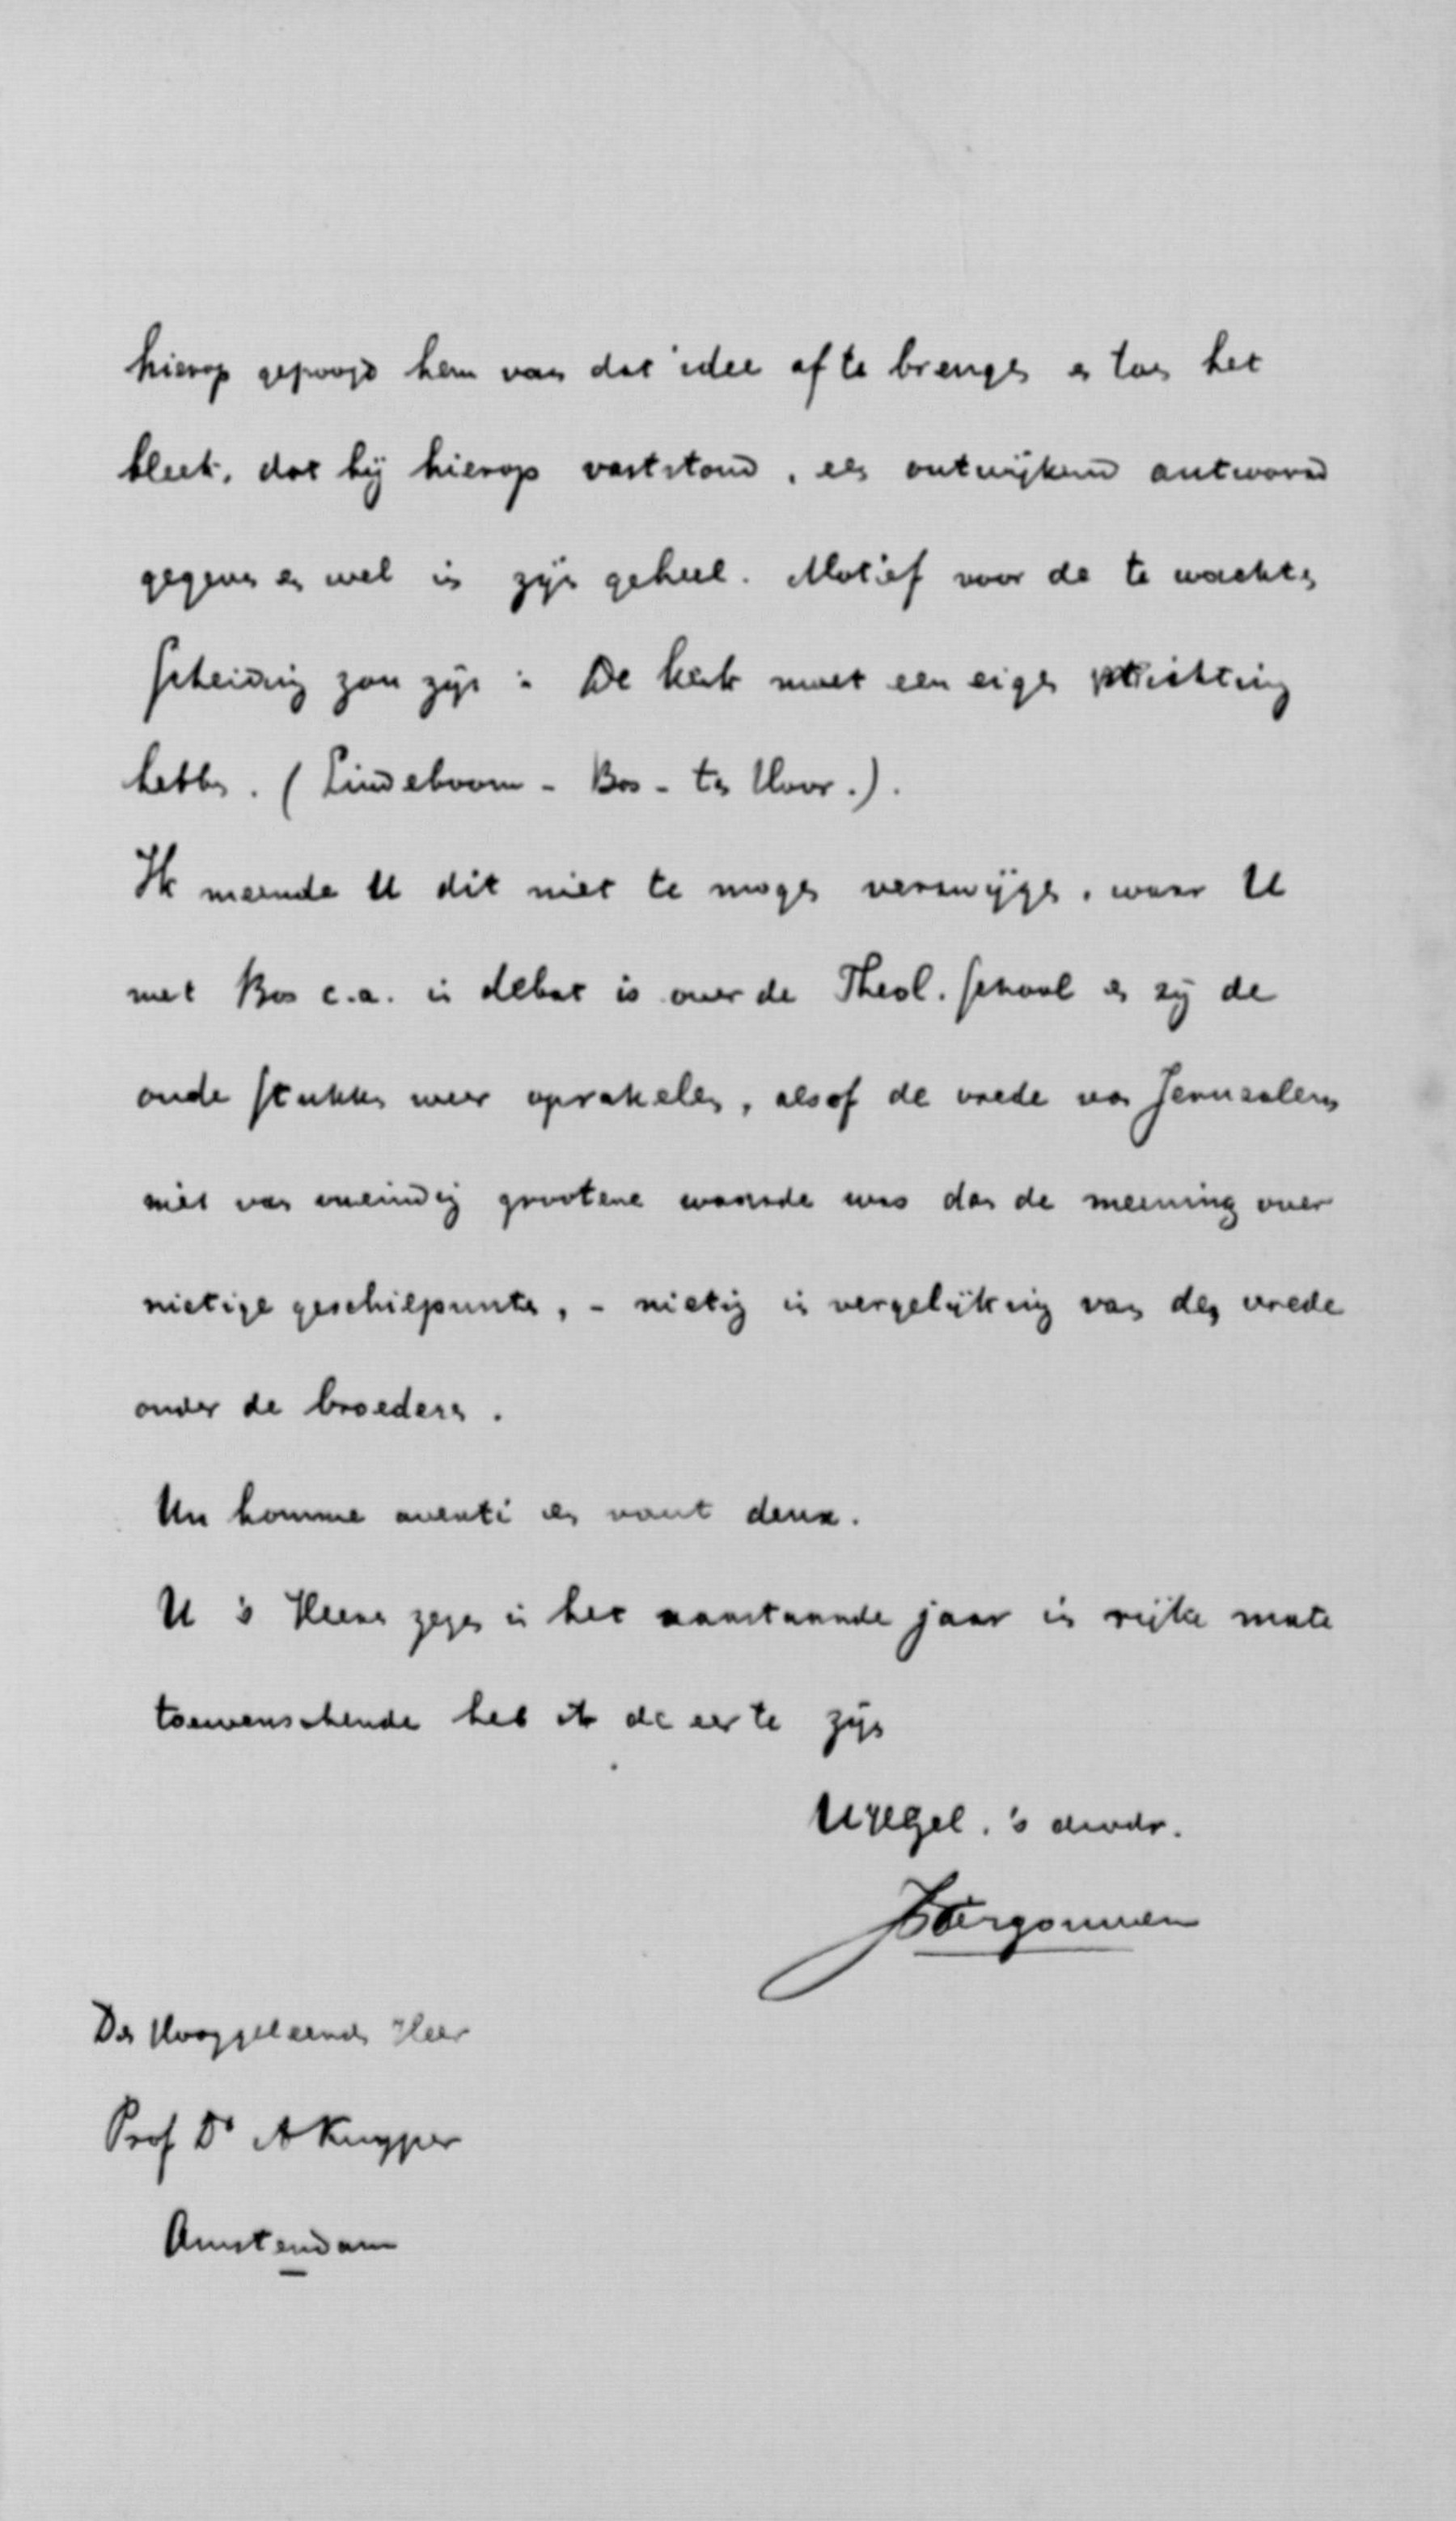 hierop gepoogd hem van dat idee af te brengen en toen het
bleek, dat hij hierop vaststond, een ontwijkend antwoord
gegeven en wel in zijn geheel. Motief voor de te wachten
scheiding zou zijn: De kerk moet een eigen stichting
hebben. (Lindeboom - Bos - ten Hoor.).
Ik meende U dit niet te mogen verzwijgen, waar U
met Bos c.a. in debat is over de Theol. School en zij de
oude stukken weer oprakelen, alsof de vrede van Jeruzalem
niet van oneindig grootere waarde was dan de meening over
nietige geschilpunten, - nietig in vergelijking van den vrede
onder de broederen.
Un homme averti en vaut deux.
U 's Heeren zegen in het aanstaande jaar in rijke mate
toewenschende heb ik de eer te zijn
UHGel.'s dwdr.
Den Hooggeleerden Heer
Prof Dr A Kuyper
Amsterdam